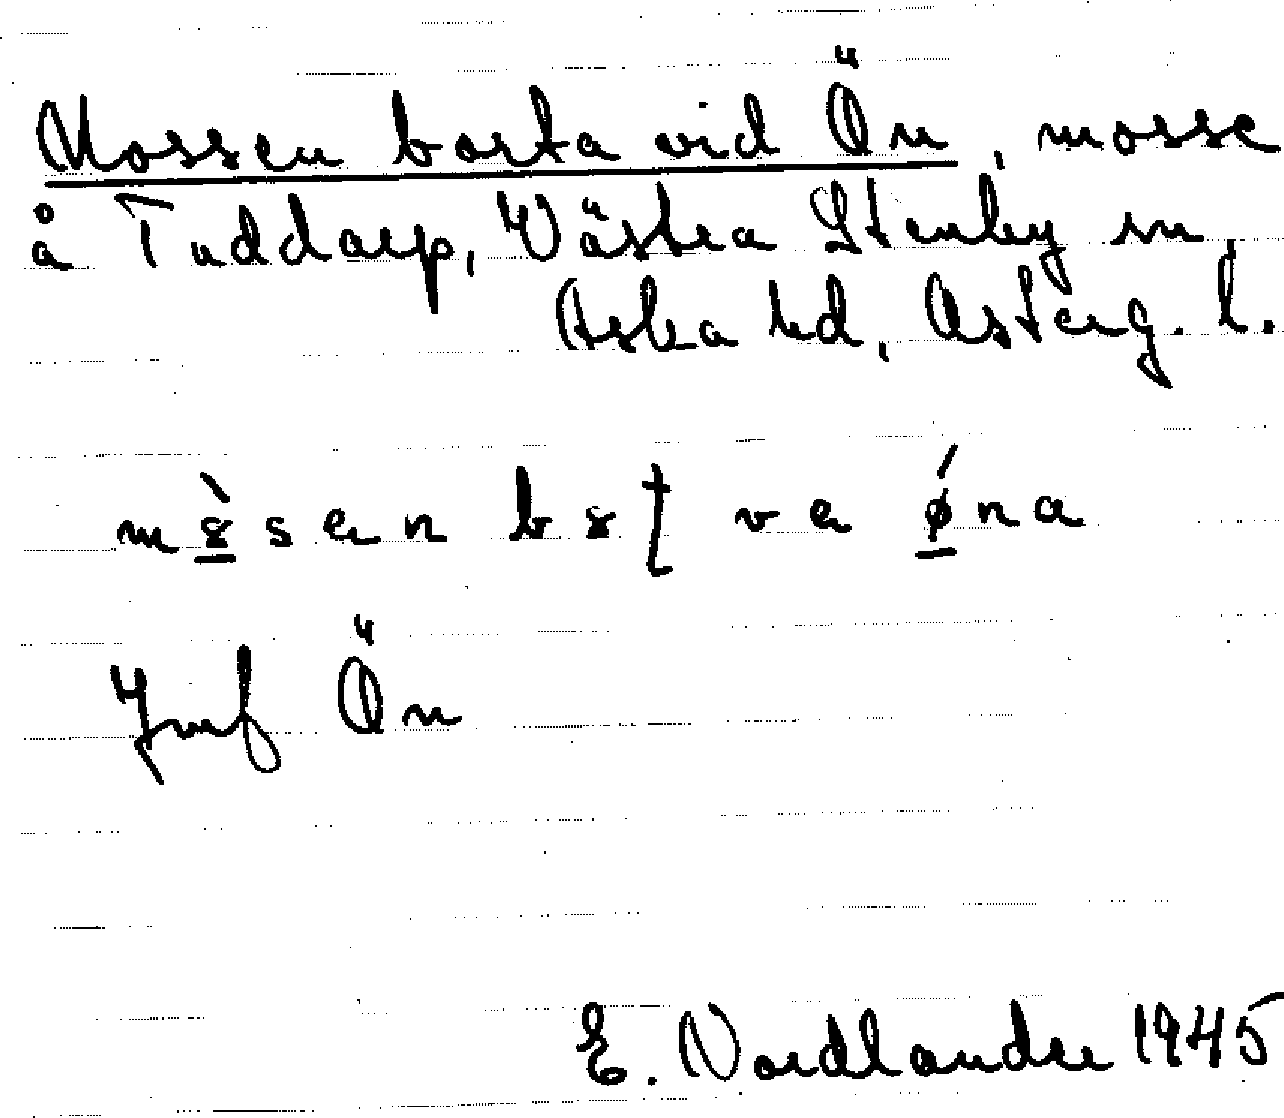 Mossen borta vid Ön, mosse
å Tuddarp, Västra Stenby sn,
Aska hd, Österg. l.
Jmf Ön
E. Nordlander 1945